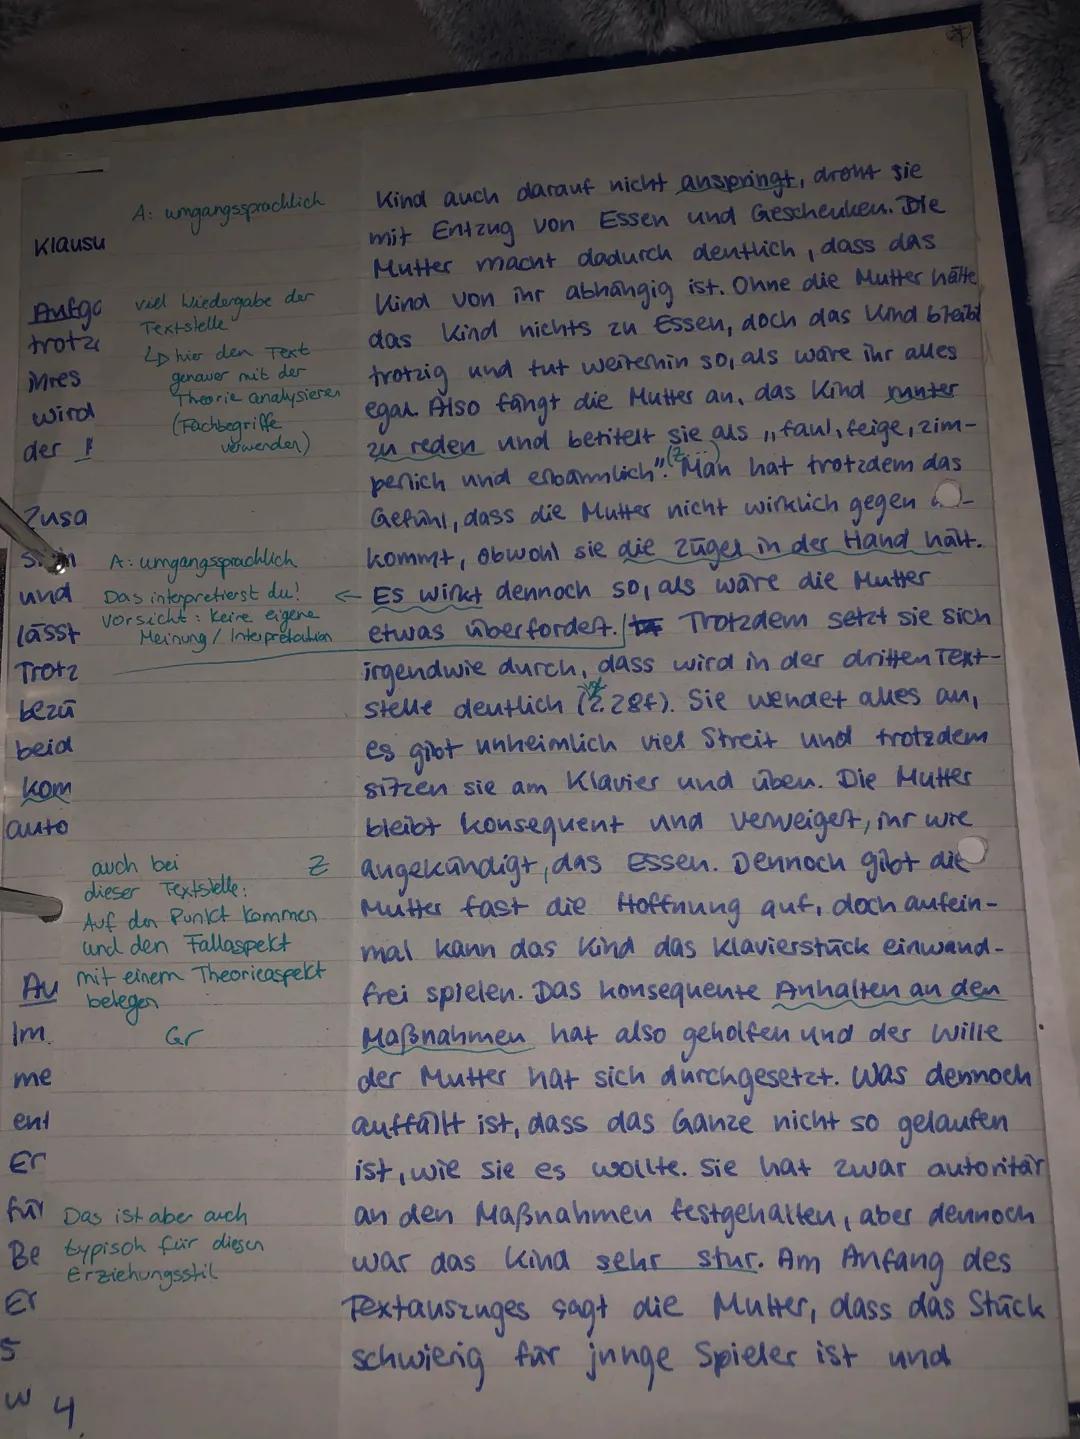 Kind auch darauf nicht anspringt, droht sie
mit Entzug von Essen und Geschenken. Die
Mutter macht dadurch deutlich, dass das
Kind von ihr abhängig ist. Ohne die Mutter hätte
das Kind nichts zu Essen, doch das Kind bleibt
trotzig und tut weiterhin so, als wäre ihr alles
egal. Also fängt die Mutter an, das Kind runter
zu reden und betitelt sie als „faul, feige, zim-
perlich und erbärmlich". (Z ...) Man hat trotzdem das
Gefühl, dass die Mutter nicht wirklich gegen
kommt, obwohl sie die Zügel in der Hand hält.
Es wirkt dennoch so, als wäre die Mutter
etwas überfordert. Trotzdem setzt sie sich
irgendwie durch, dass wird in der dritten Text-
stelle deutlich (Z. 28f). Sie wendet alles an,
es gibt unheimlich viel Streit und trotzdem
sitzen sie am Klavier und üben. Die Mutter
bleibt konsequent und verweigert, ihr wie
angekündigt, das Essen. Dennoch gibt die
Mutter fast die Hoffnung auf, doch aufein-
mal kann das Kind das Klavierstück einwand-
frei spielen. Das konsequente Anhalten an den
Maßnahmen hat also geholfen und der Wille
der Mutter hat sich durchgesetzt. Was dennoch
auffällt ist, dass das Ganze nicht so gelaufen
ist, wie sie es wollte. Sie hat zwar autoritär
an den Maßnahmen festgehalten, aber dennoch
war das Kind sehr stur. Am Anfang des
Textauszuges sagt die Mutter, dass das Stück
schwierig für junge Spieler ist und
A: umgangssprachlich
viel Wiedergabe der
Textstelle
↳ hier den Text
genauer mit der
Theorie analysieren
(Fachbegriffe
verwenden)
A: umgangssprachlich
Das interpretierst du! ←
Vorsicht: keine eigene
Meinung / Interpretation
auch bei
dieser Textstelle:
Auf den Punkt kommen
und den Fallaspekt
mit einem Theorieaspekt
belegen
Z
Gr
Das ist aber auch
typisch für diesen
Erziehungsstil
Klausu
Aufga
trotz
ihres
wird
der
Zusa
und
lässt
Trotz
bezü
beid
kom
auto
Au
Im
me
ent
Er
für
Be
Er
5
w
4